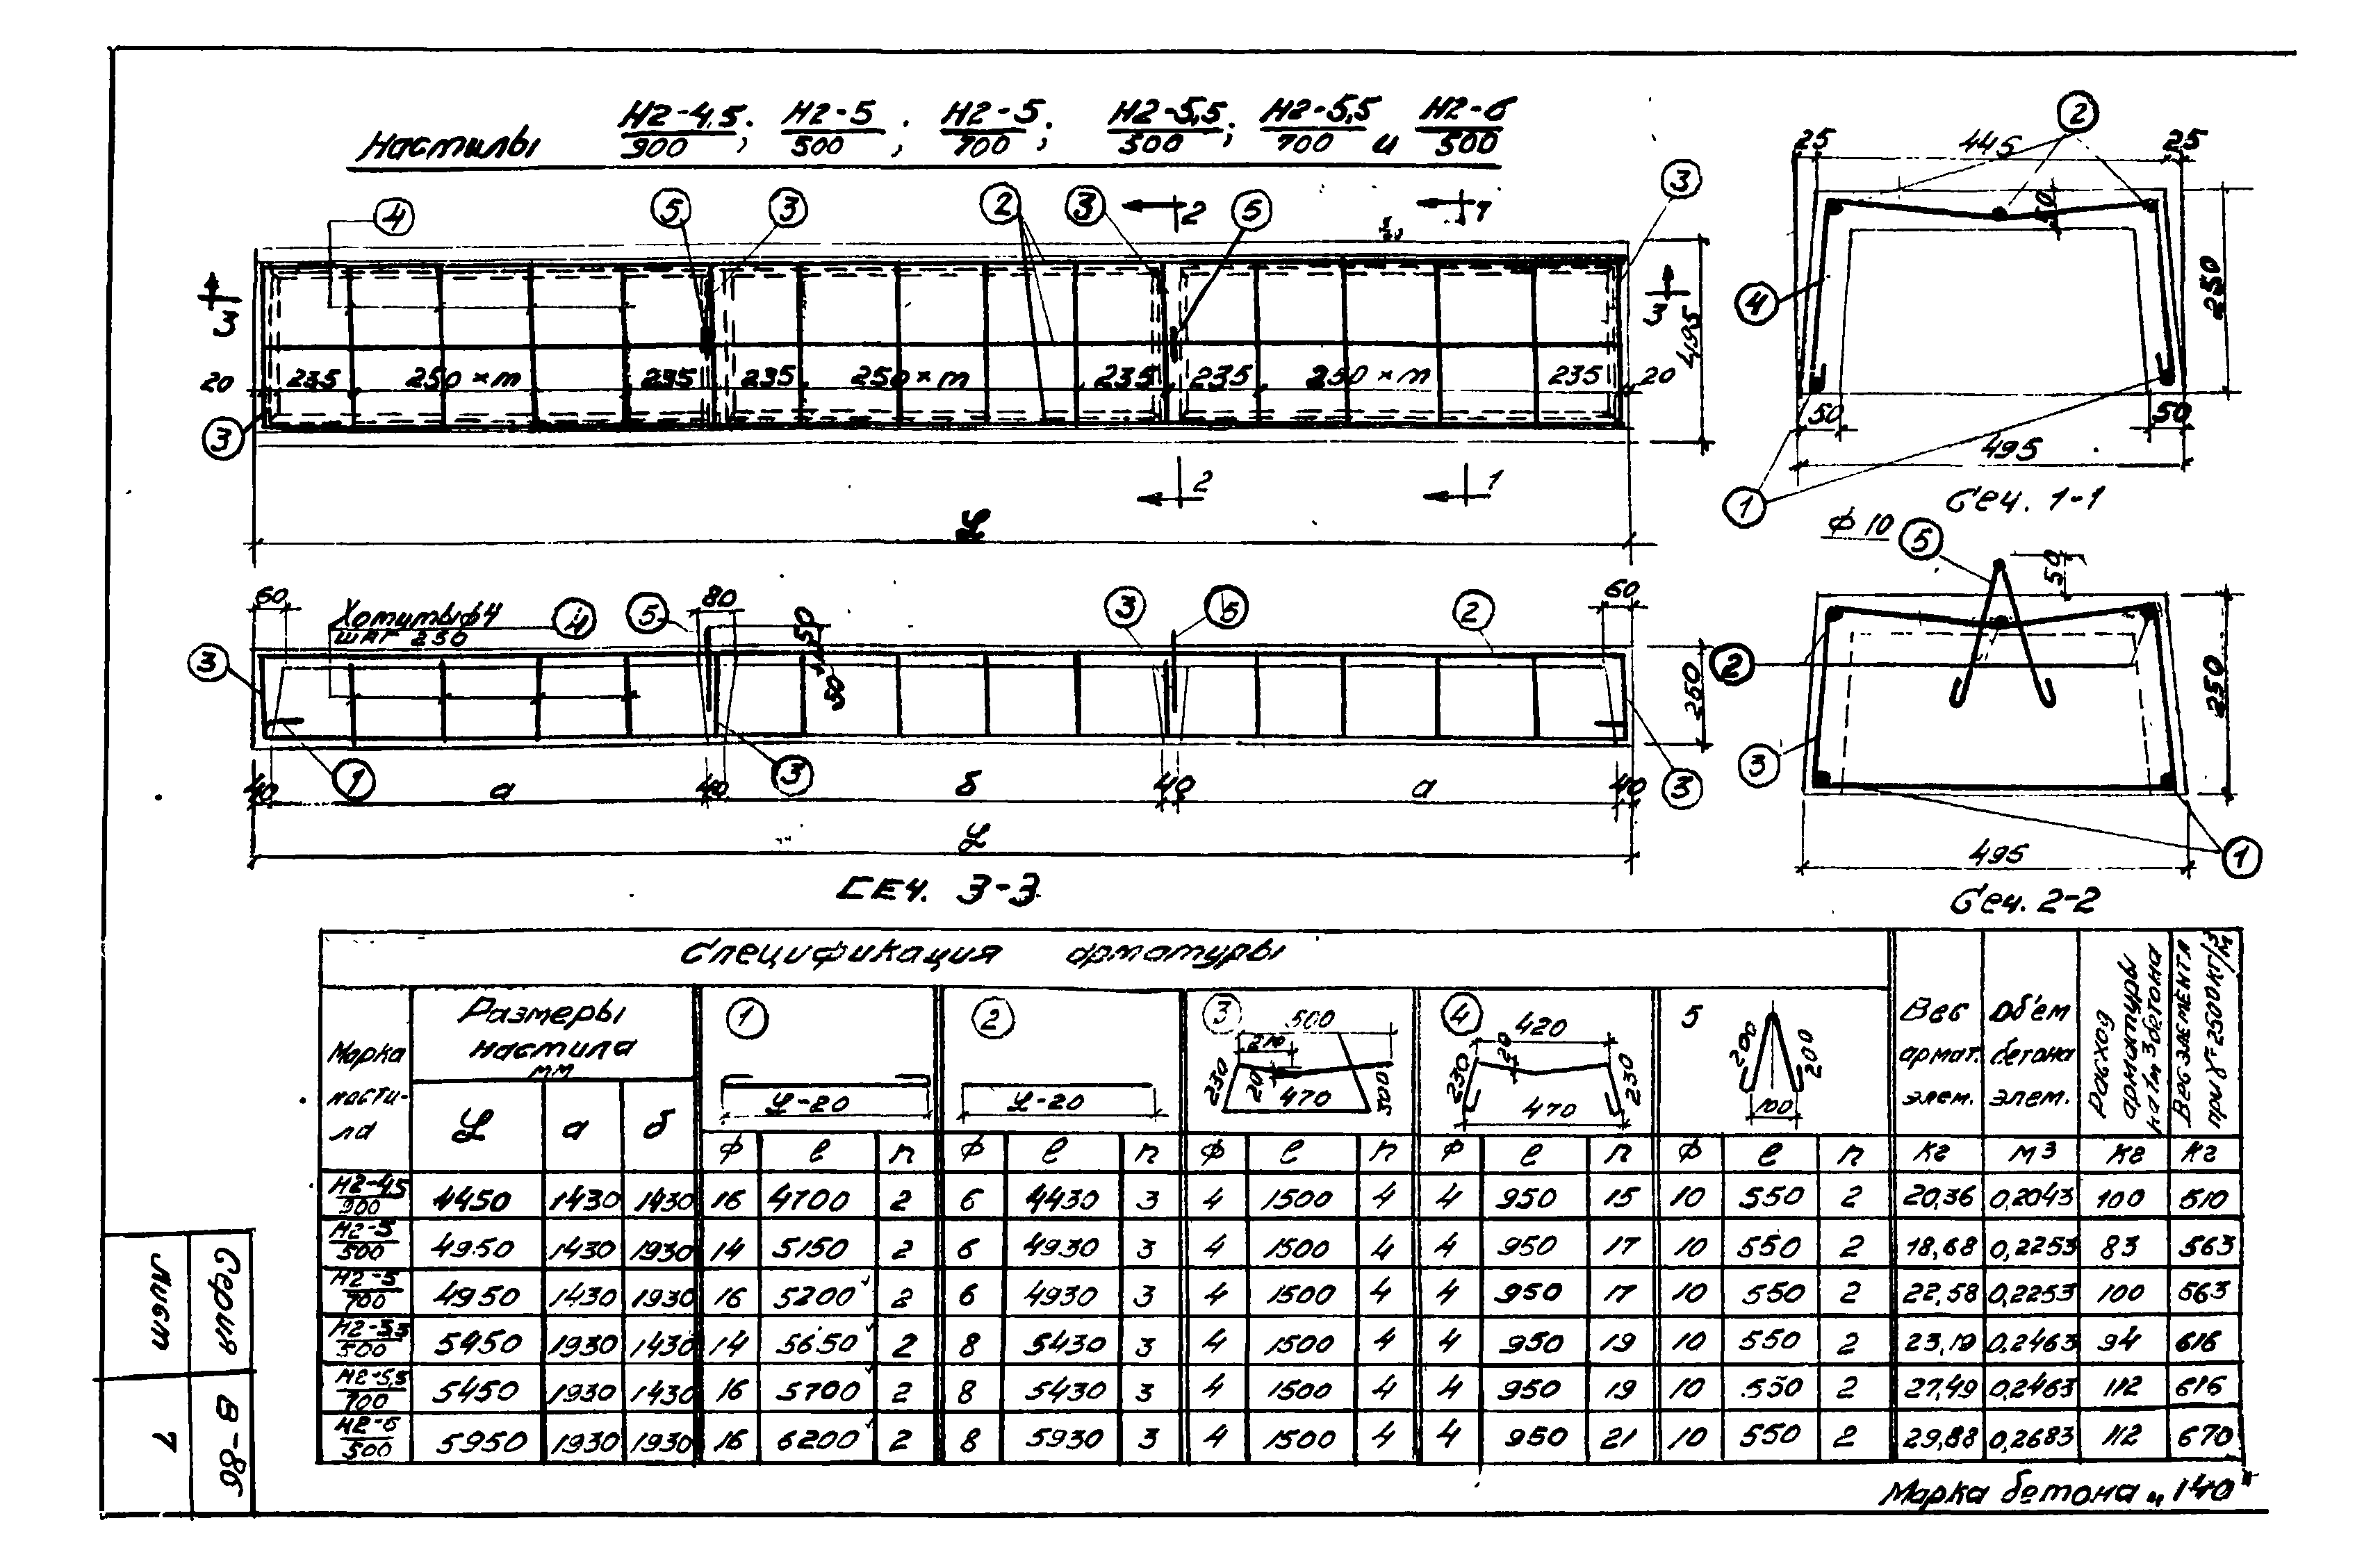 Настилы Н2-4,5/900; Н2-5/500; Н2-5/700; Н2-5,5/500; Н2-5,5/700 и Н2-6/500
4 5 3 2 3 2 5 1 3
3 3
20 235 250×m 235 235 250×m 235 235 250×m 235 20
495
3
2 1
L
2
25 445 25
50
4
250
50 50
495
1
Сеч. 1-1
60 Хомуты ф4 4 5 80 3 5 2 60
шаг 250
50
3
250
50
1 3 3
40 а 40 б 40 а 40
L
Сеч. 3-3
ф 10 5
50
2
250
3
495
1
Сеч. 2-2
Спецификация арматуры
Марка настила
Размеры настила мм
L а б
1 L-20
2 L-20
3 500 210 230 20 470 300
4 420 20 230 230 470
5 200 200 100
Вес армат. элем.
Объем бетона элем.
Расход арматуры на 1м3 бетона
Вес элемента при γ=2500кг/м3
ф l n ф l n ф l n ф l n ф l n кг м3 кг кг
Н2-4,5/900 4450 1430 1430 16 4700 2 6 4430 3 4 1500 4 4 950 15 10 550 2 20,36 0,2043 100 510
Н2-5/500 4950 1430 1930 14 5150 2 6 4930 3 4 1500 4 4 950 17 10 550 2 18,68 0,2253 83 563
Н2-5/700 4950 1430 1930 16 5200 2 6 4930 3 4 1500 4 4 950 17 10 550 2 22,58 0,2253 100 563
Н2-5,5/500 5450 1930 1430 14 5650 2 8 5430 3 4 1500 4 4 950 19 10 550 2 23,19 0,2463 94 616
Н2-5,5/700 5450 1930 1430 16 5700 2 8 5430 3 4 1500 4 4 950 19 10 550 2 27,49 0,2463 112 616
Н2-6/500 5950 1930 1930 16 6200 2 8 5930 3 4 1500 4 4 950 21 10 550 2 29,88 0,2683 112 670
Марка бетона „140"
Серия В-86
Лист 7